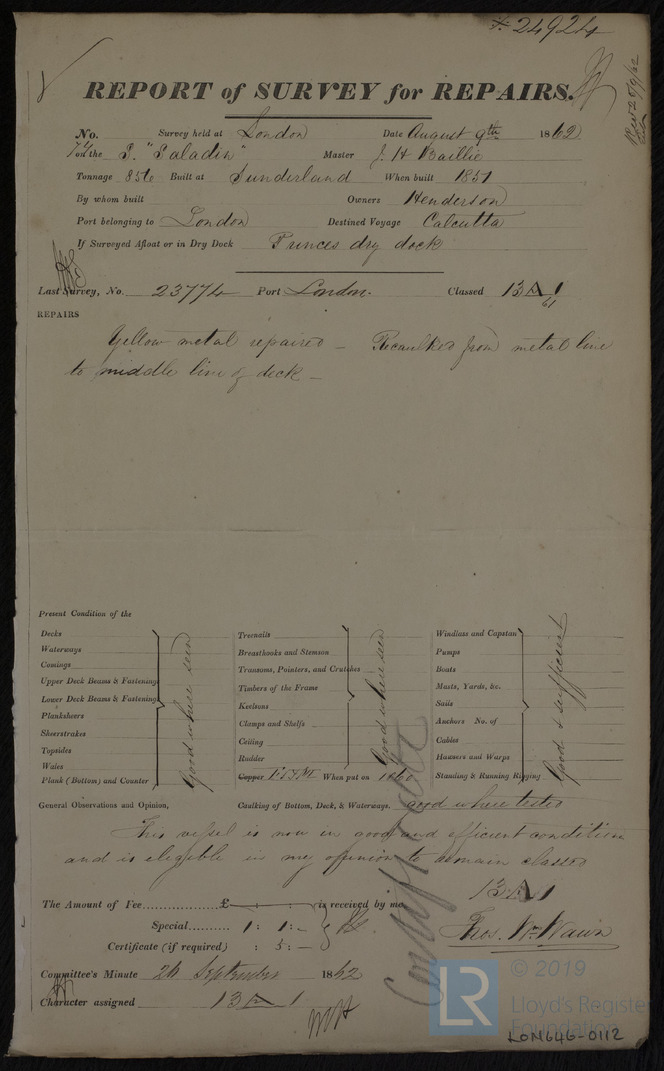 24924
REPORT of SURVEY for REPAIRS.
No. Survey held at London Date August 9th 1862
on the S. "Saladin" Master J. H Baillie
Tonnage Built at Sunderland When built 1851
By whom built Owners Henderson
Port belonging to London Destined Voyage Calcutta
If Surveyed Afloat or in Dry Dock Princes dry dock
Last Survey, No. 23774 Port London. Classed 13 A 1
61
REPAIRS
Yellow metal repaired - Recaulked from metal line
to middle line of deck -
Present Condition of the
Decks
Waterways
Comings
Upper Deck Beams & Fastenings
Lower Deck Beams & Fastenings
Planksheers
Sheerstrakes
Topsides
Wales
Plank (Bottom) and Counter
Good where seen
Treenails
Breasthooks and Stemson
Transoms, Pointers, and Crutches
Timbers of the Frame
Keelsons
Clamps and Shelfs
Ceiling
Rudder
Good where seen
Copper When put on 1860
Windlass and Capstan
Pumps
Boats
Masts, Yards, &c.
Sails
Anchors No. of
Cables
Hawsers and Warps
Standing & Running Rigging
Good & sufficient
General Observations and Opinion, Caulking of Bottom, Deck, & Waterways. good where tested
This vessel is now in good and efficient condition
and is eligible in my opinion to remain classed
13 A 1
The Amount of Fee £ : : is received by me,
Special 1 : 1 : -
Certificate (if required) : 5 : -
Thos. Wm Wawn
Certificate
Committee's Minute 26 September 1862
Character assigned 13 A 1
LR
© 2019
Lloyd's Register
Foundation
LON646-0112